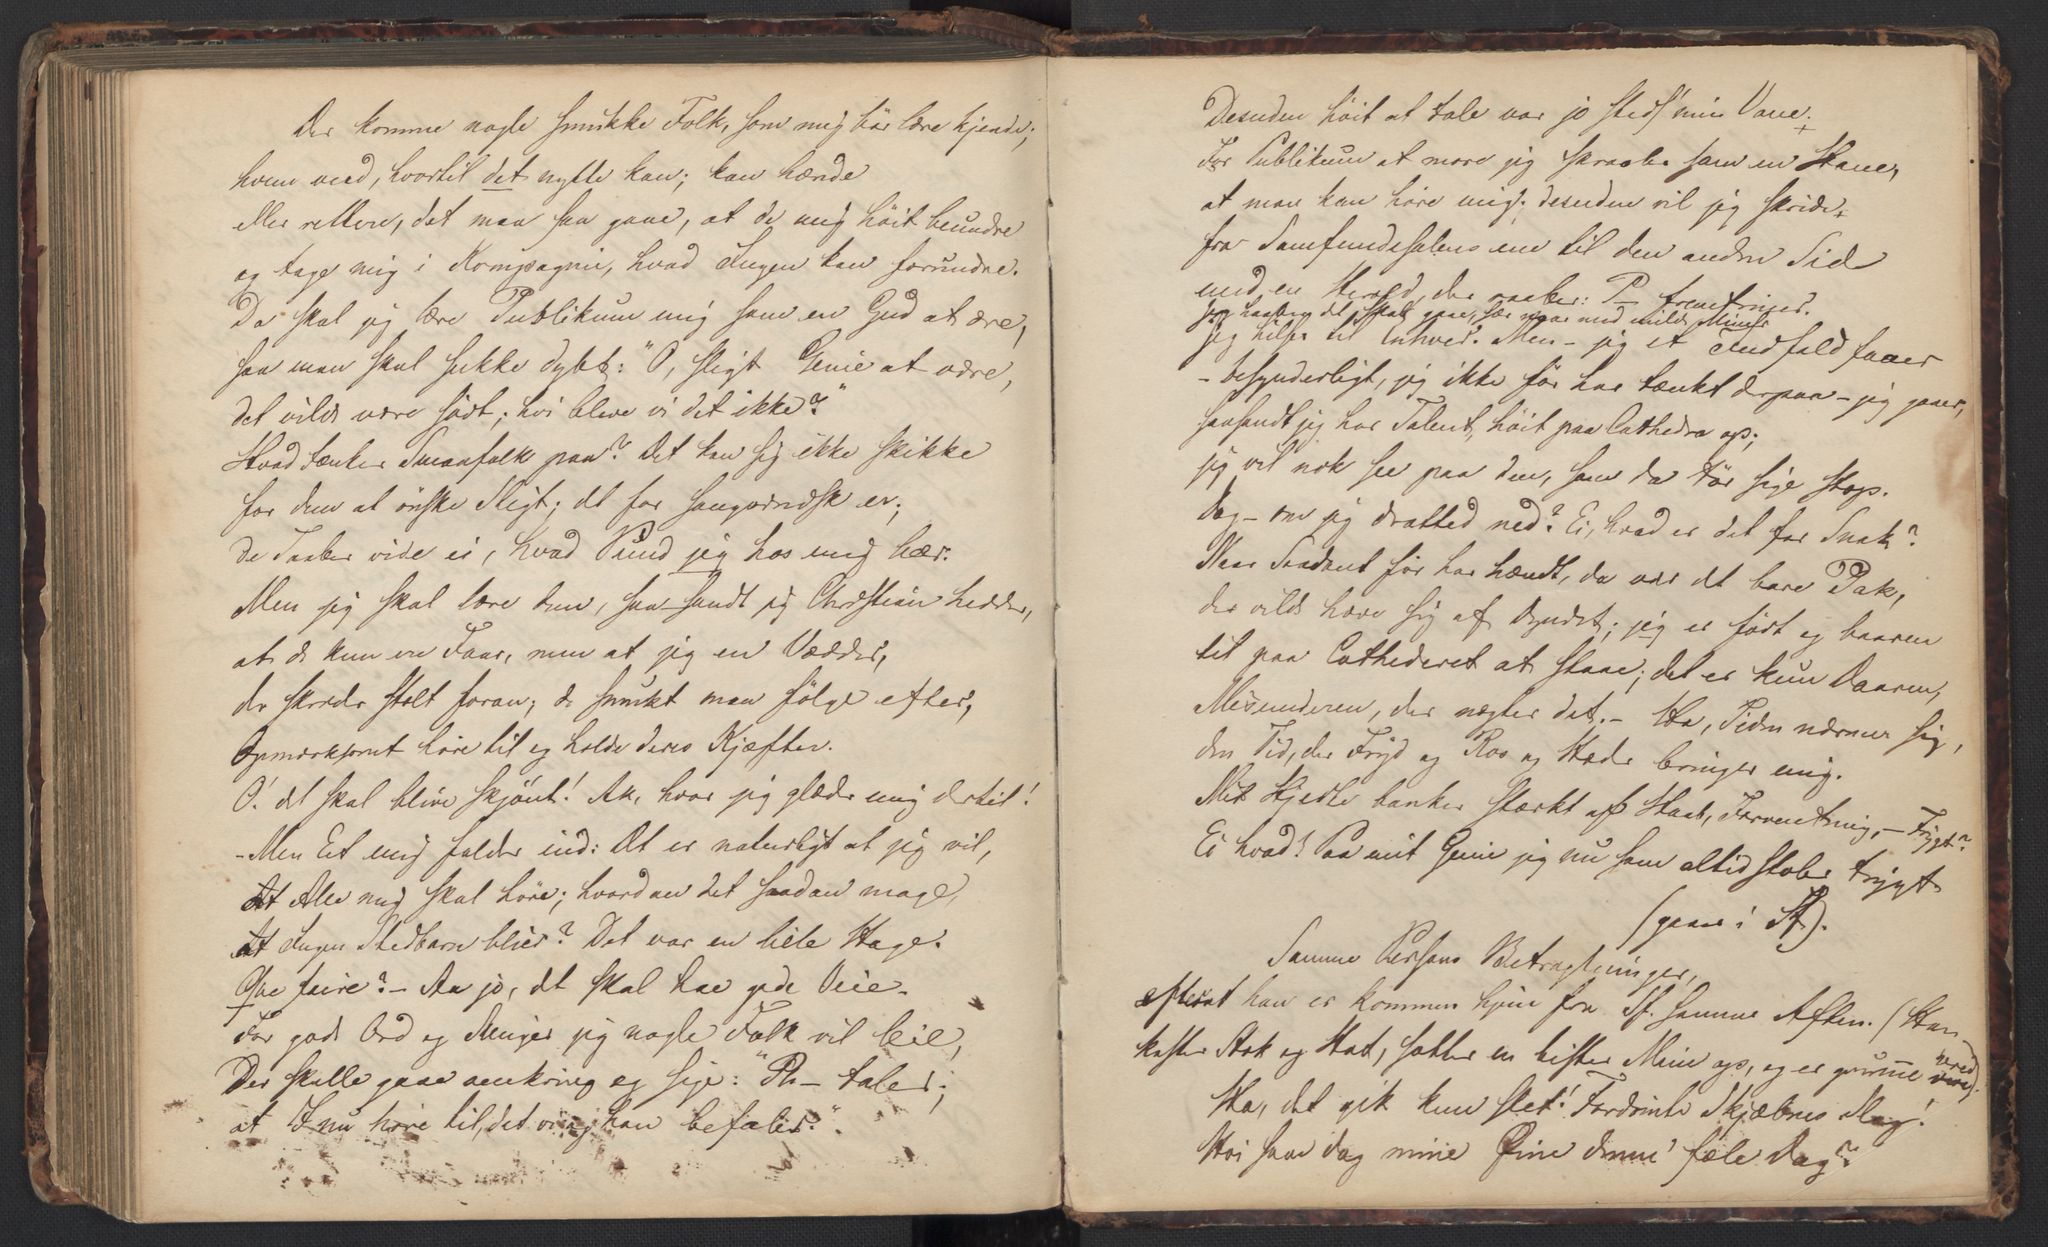 Der komme nogle smukke Folk, som mig bør lære kjende;
hvem veed, hvortil det nytte kan; kan hænde
eller rettere, det maa saa gaae, at de mig høit beundre
og tage mig i Kompagnie, hvad Ingen kan forundre.
Da skal jeg lære Publikum mig som en Gud at ære,
saa man skal sukke dybt: "O, sligt Genie at være,
det vilde være sødt; hvi bleve vi det ikke?"
Hvad tænker Smaafolk paa? Det kan sig ikke skikke
for dem at ønske Sligt; det for sangvinsk er;
de Taaber vide ei, hvad Pund jeg hos mig bær.
Men jeg skal lære dem, saasandt jeg Christian hedder,
at de kun ere Faar, men at jeg en Vædder,
der skrider stolt foran; de smukt maa følge efter,
opmærksomt høre til og holde deres Kjæfter.
O! det skal blive skjønt! Ak, hvor jeg glæder mig dertil!
- Men Eet mig falder ind: Det er naturligt at jeg vil,
At Alle mig skal høre; hvordan det saadan mage,
At Ingen Stedbarn blier? Det var en lille Hage.
Que faire? - Aa jo, det skal ha gode Veie.
For gode Ord og Penger jeg nogle Folk vil leie,
Der skulle gaae omkring og sige: "Ph- taler;
at I nu høre til, det vi og han befaler."
Desuden høit at tale var jo steds' min Vane.
For Publikum at more jeg skraaler som en Hane,
at man kan høre mig; desuden vil jeg skride
fra Samfundssalens ene til den anden Side
med en Herold, der raaber: P- fremtriner.
Jeg haaber det skal gaae, især naar med milde Miner
jeg hilser til Enhver. Men - jeg et Indfald faaer
- besynderligt, jeg ikke før har tænkt derpaa - jeg gaaer,
saasandt jeg har Talent, høit paa Cathedra op;
jeg vil nok see paa den, som da tør sige stop.
Dog - om jeg dratted ned? Ei, hvad er det for Snak?
Naar Saadant før har hændt, da var det bare Pak,
der vilde hæve sig af Dyndet; jeg er født og baaren
til paa Cathederet at staae; det er kun Daaren,
Misunderen, der nægter det. - Ha, Tiden nærmer sig,
den Tid, der Fryd og Ros og Hæder bringer mig.
Mit Hjerte banker stærkt af Haab, Forventning, - Frygt?
Ei hvad! Paa mit Genie jeg nu som altid stoler trygt.
(gaaer i St).
Samme Persons Betragtninger,
efterat han er kommen hjem fra Sf. samme Aften. (Han
kaster Stok og Hat, sætter en bister Mine op, og er grumme vred).
Ha, det gik kun slet! Fordømte Skjæbnes Mag!
Hvi saae dog mine Øine denne fæle Dag?